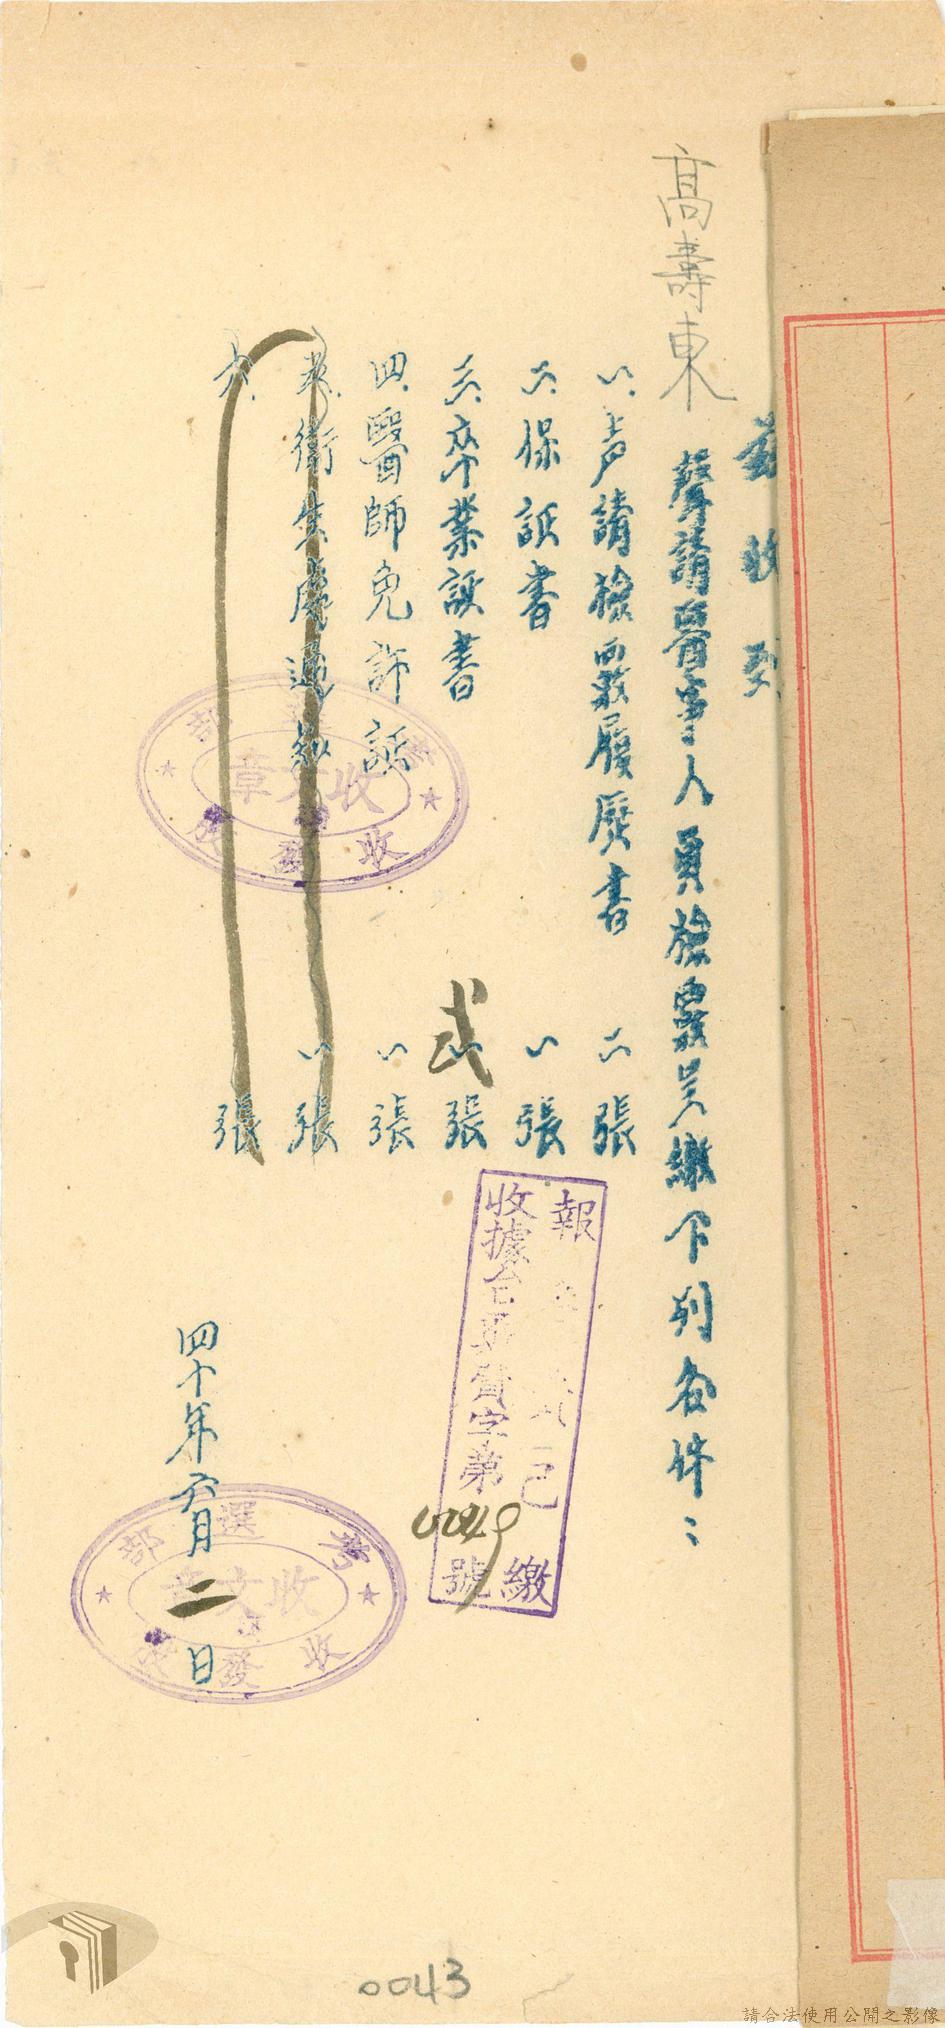 茲收到
高壽東
聲請醫事人員檢覈呈繳下列各件：
一、声請檢覈履歷書 二張
二、保証書 一張
三、卒業証書 一張
弍
四、醫師免許証 一張
五、衛生處通知 一張
六、 張
考選部
收文章
收發
報 已繳
收據台 字第 號
四十年六月二日
考選部
收文章
收發
0043
請合法使用公開之影像